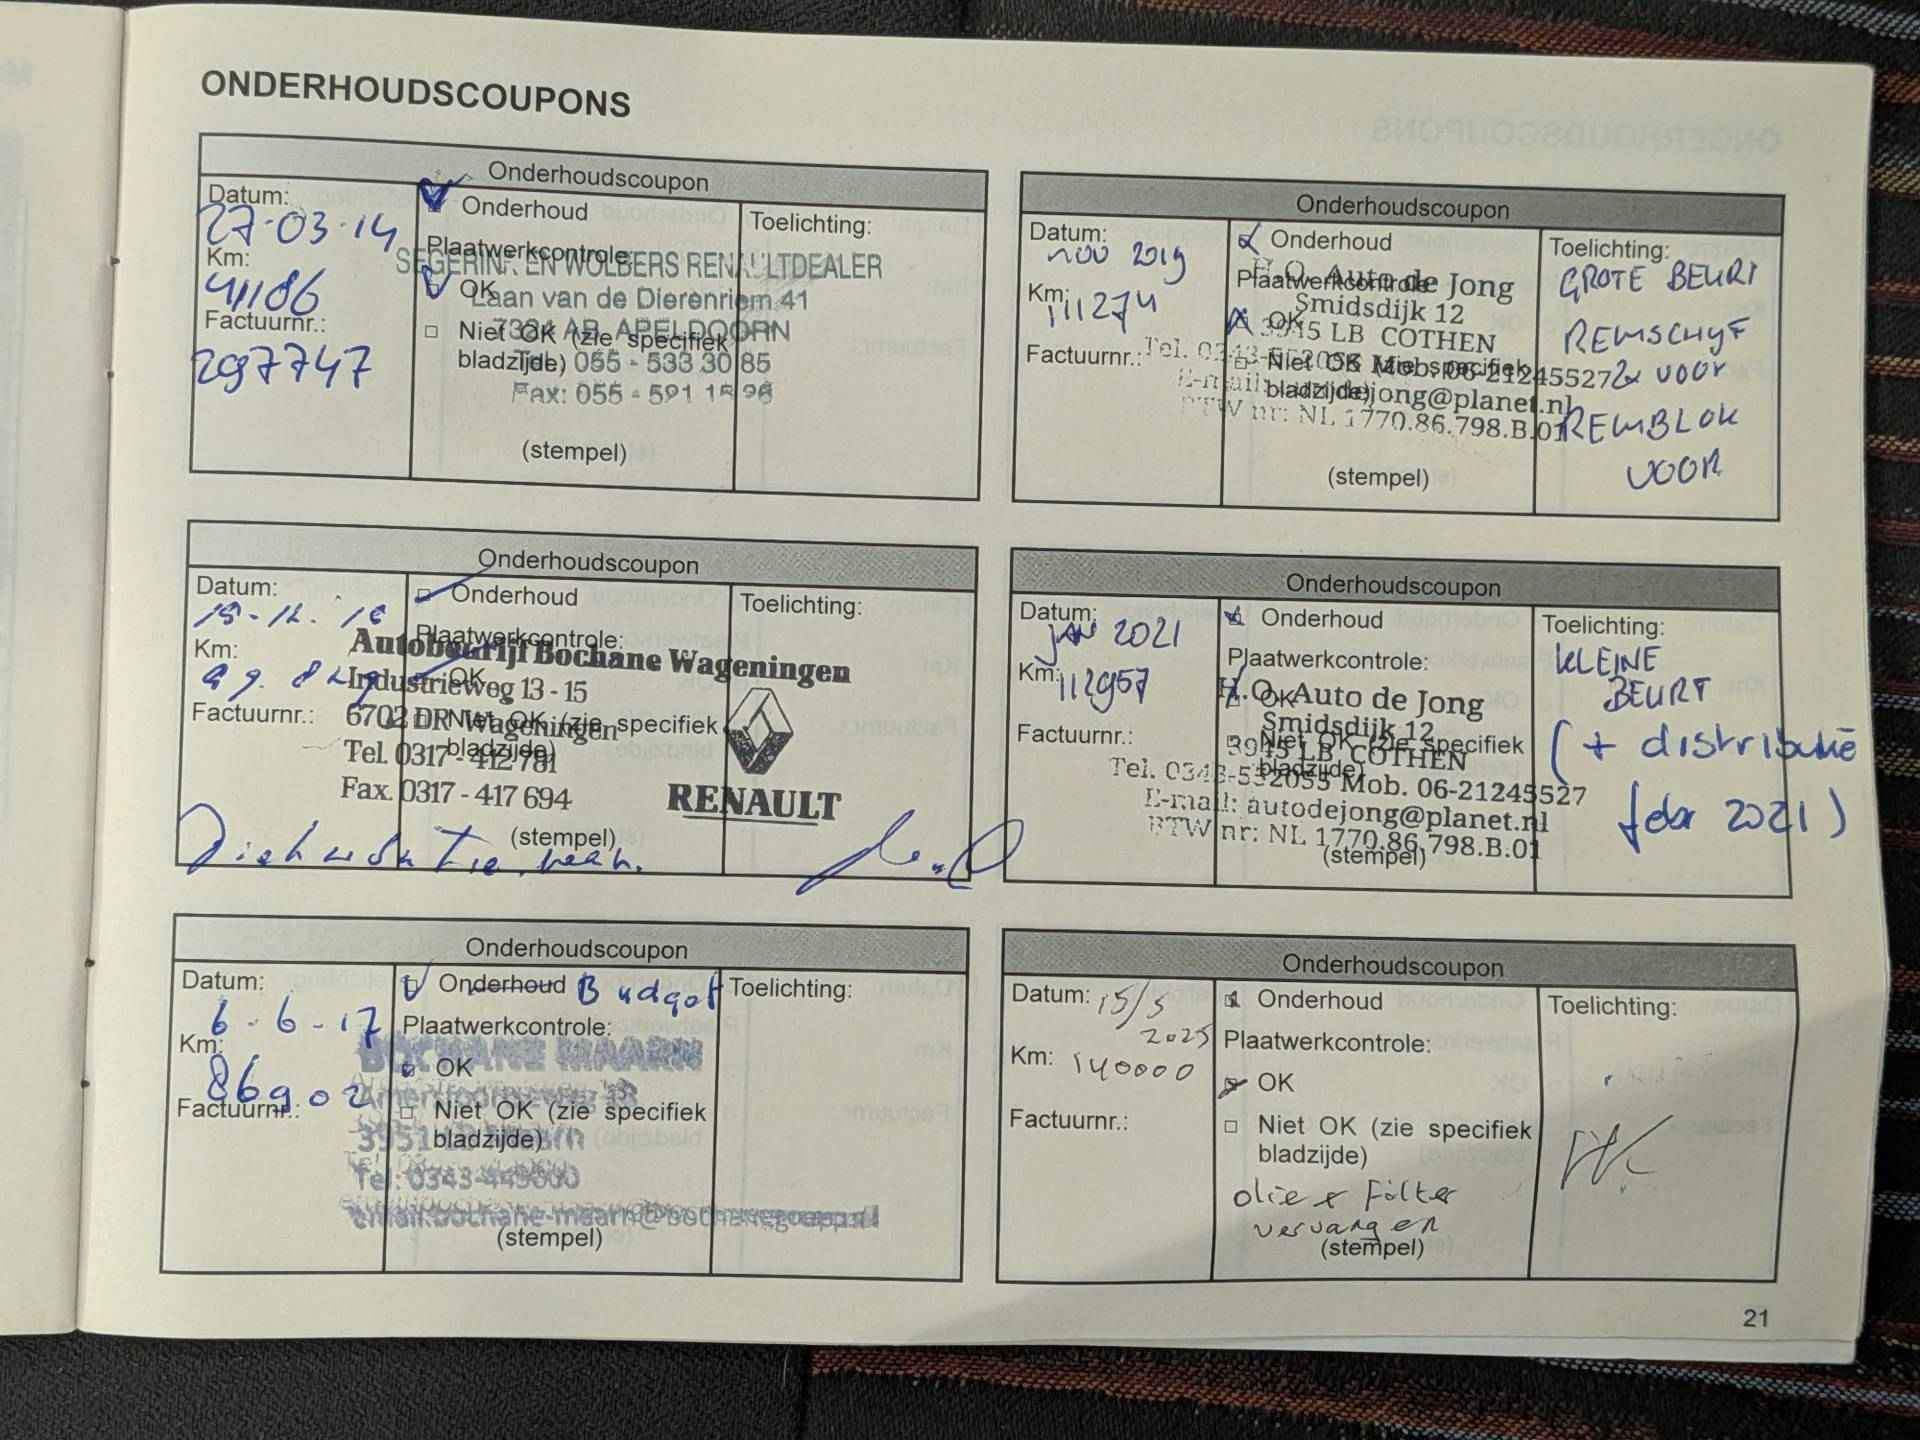 ONDERHOUDSCOUPONS
Onderhoudscoupon
Datum:
27-03-14
Km:
41186
Factuurnr.:
297747
Onderhoud
Plaatwerkcontrole:
OK
Niet OK (zie specifiek
bladzijde)
(stempel)
Toelichting:
EN WOLBERS RENAULTDEALER
Laan van de Dierenriem 41
APELDOORN
055 - 533 30 85
Fax: 055 - 591
Onderhoudscoupon
Datum:
15-12-16
Km:
Factuurnr.:
Onderhoud
Plaatwerkcontrole:
OK
Niet OK (zie specifiek
bladzijde)
(stempel)
Toelichting:
Autobedrijf Bochane Wageningen
Industrieweg 13 - 15
6702 DR Wageningen
Tel. 0317 - 412 781
Fax. 0317 - 417 694
RENAULT
Onderhoudscoupon
Datum:
6-6-17
Km:
86902
Factuurnr.:
Onderhoud Budget
Plaatwerkcontrole:
OK
Niet OK (zie specifiek
bladzijde)
(stempel)
Toelichting:
BOCHANE MAARN
Amersfoortseweg
3951 Maarn
Tel: 0343-449000
email:bochane-maarn@bochanegroep.nl
Onderhoudscoupon
Datum:
nov 2019
Km:
111274
Factuurnr.:
Onderhoud
Plaatwerkcontrole:
OK
Niet OK (zie specifiek
bladzijde)
(stempel)
H.O. Auto de Jong
Smidsdijk 12
3945 LB COTHEN
Tel. 0343-552055 Mob. 06-21245527
E-mail: autodejong@planet.nl
BTW nr: NL 1770.86.798.B.01
Toelichting:
GROTE BEURT
REMSCHYF
2x VOOR
REMBLOK
VOOR
Onderhoudscoupon
Datum:
JAN 2021
Km:
112957
Factuurnr.:
Onderhoud
Plaatwerkcontrole:
OK
Niet OK (zie specifiek
bladzijde)
(stempel)
H.O. Auto de Jong
Smidsdijk 12
3945 LB COTHEN
Tel. 0343-552055 Mob. 06-21245527
E-mail: autodejong@planet.nl
BTW nr: NL 1770.86.798.B.01
Toelichting:
KLEINE
BEURT
(+ distributie
febr 2021)
Onderhoudscoupon
Datum: 15/5
2025
Km: 140000
Factuurnr.:
Onderhoud
Plaatwerkcontrole:
OK
Niet OK (zie specifiek
bladzijde)
olie & Filter
vervangen
(stempel)
Toelichting:
21